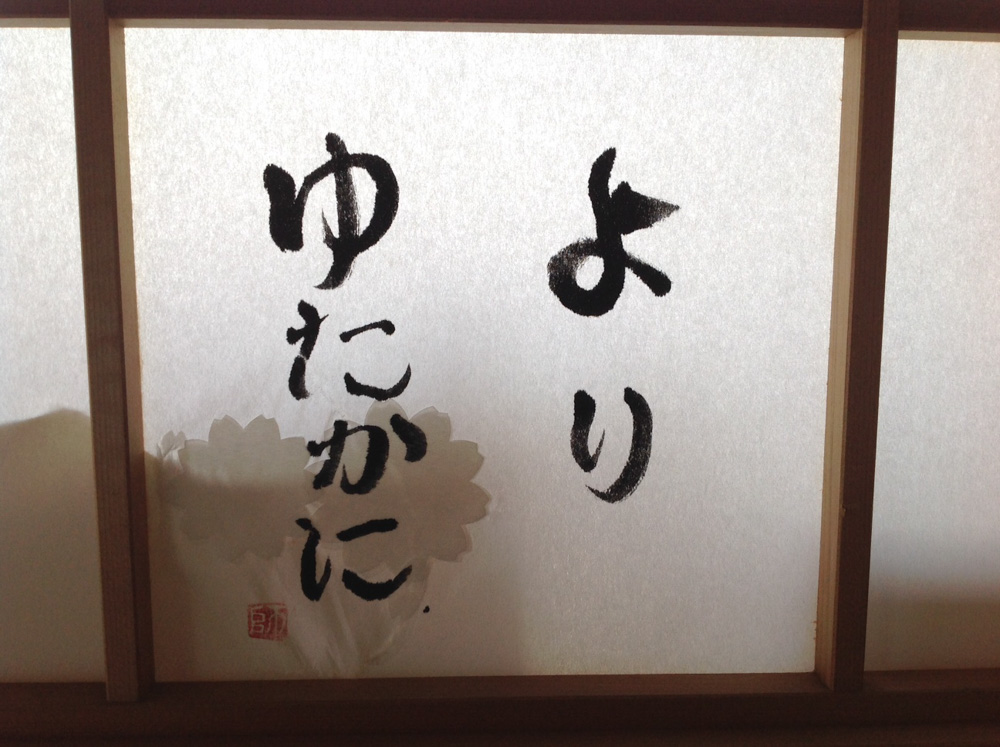 より
ゆたかに